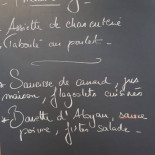 - Assiette de charcuterie
- Taboulé au poulet
- Saucisse de canard, jus
maison, flageolets cuisinés
- Bavette d'Aloyau, sauce
poivre, frites salade -